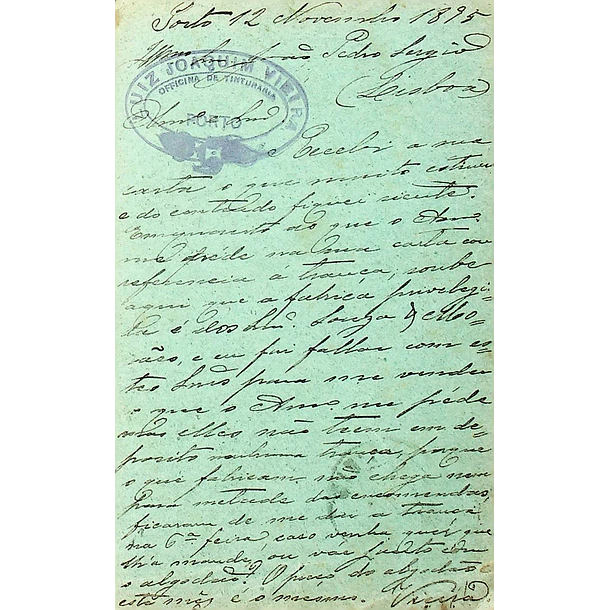 Porto 12 Novembro 1895
Pedro Sergio
(Lisboa
LUIZ JOAQUIM VIEIRA
OFFICINA DE TINTURARIA
PORTO
Recebi a sua
carta o que muito estimei
e do conteudo fiquei sciente.
Emquanto ao que o Amo
me pede na sua carta com
referencia á trança, soube
aqui que a fabrica privelegi-
da é dos Snrs. Souza & Mo-
rães, e eu fui fallar com es-
tes Snrs para me vender
o que o Amo. me péde
mas elles não teem em de-
posito nenhuma trança, porque
o que fabricam não chega nem
para metade das encommendas,
ficaram de me dar a trança
na 6ª feira, caso venha quer que
lh'a mande, ou vae junto com
o algodão? O preço do algodão
este mez é o mesmo. Vieira.